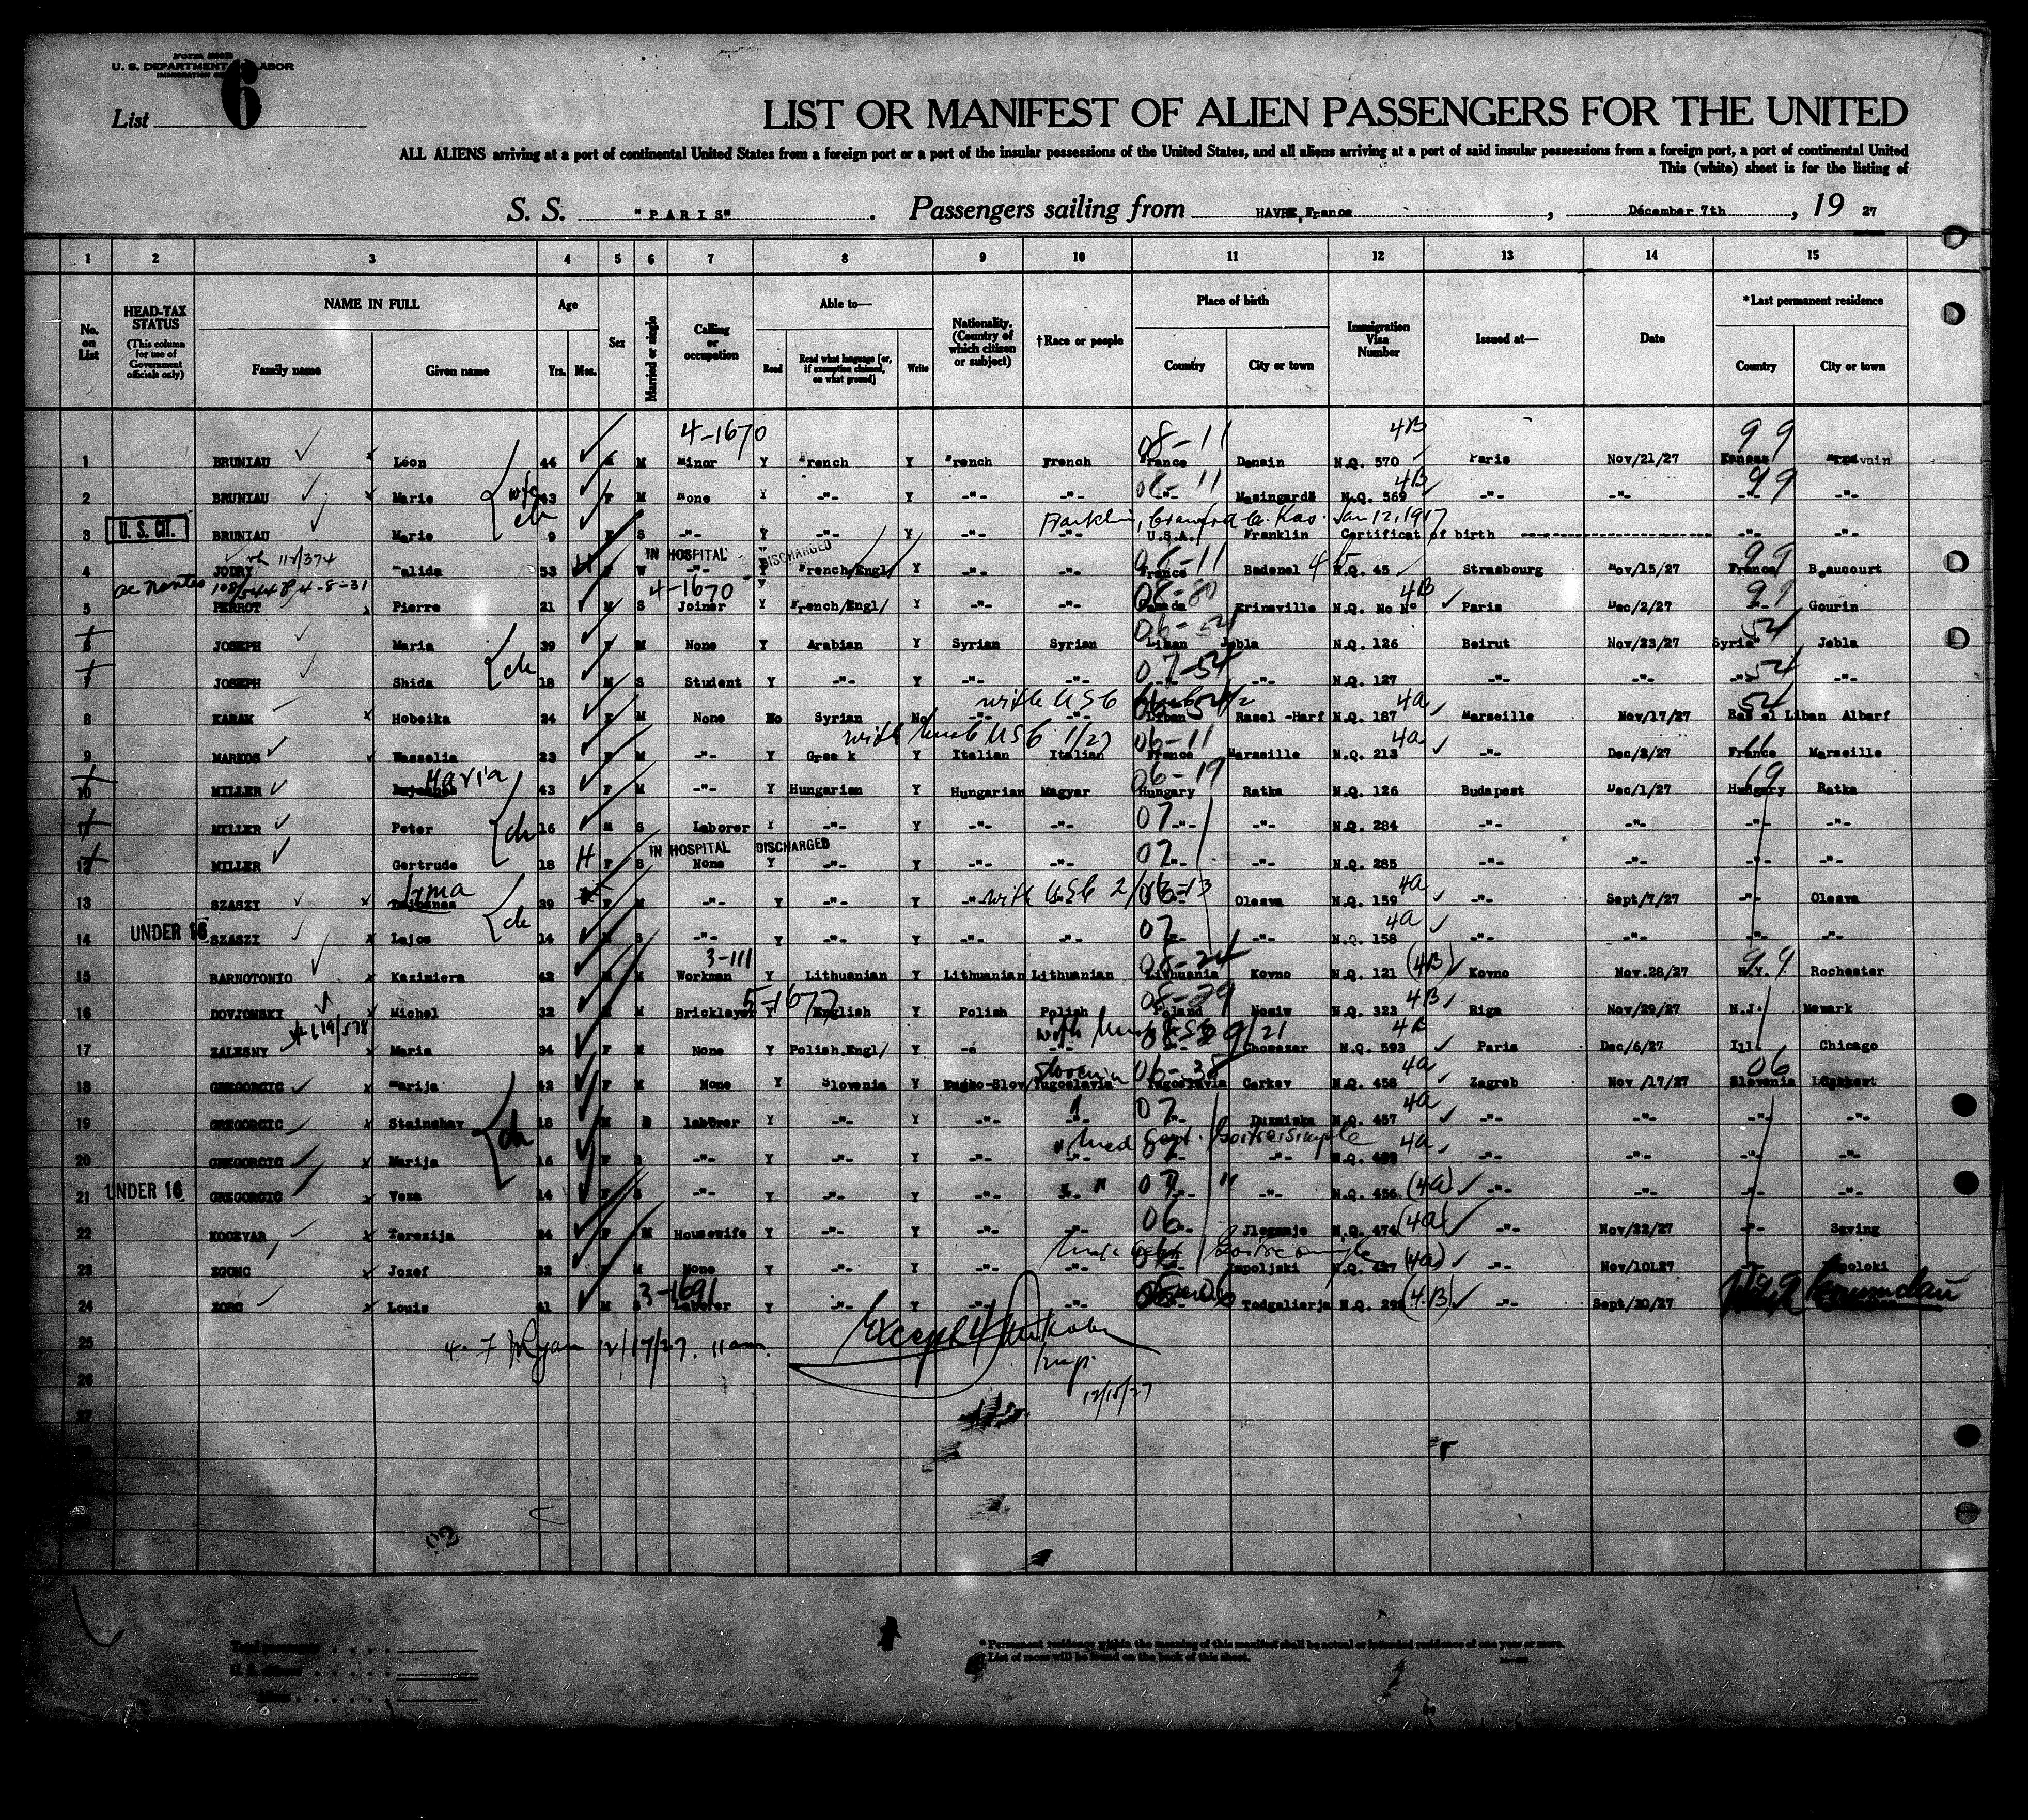 Form 500B
U. S. DEPARTMENT OF LABOR
IMMIGRATION
List 6
LIST OR MANIFEST OF ALIEN PASSENGERS FOR THE UNITED
ALL ALIENS arriving at a port of continental United States from a foreign port or a port of the insular possessions of the United States, and all aliens arriving at a port of said insular possessions from a foreign port, a port of continental United
This (white) sheet is for the listing of
S. S. "PARIS" . Passengers sailing from HAVRE, France , Décember 7th , 19 27
1 2 3 4 5 6 7 8 9 10 11 12 13 14 15
No. on List
HEAD-TAX STATUS (This column for use of Government officials only)
NAME IN FULL
Family name Given name
Age
Yrs. Mos.
Sex
Married or single
Calling or occupation
Able to—
Read Read what language [or, if exemption claimed, on what ground] Write
Nationality. (Country of which citizen or subject)
†Race or people
Place of birth
Country City or town
Immigration Visa Number
Issued at—
Date
*Last permanent residence
Country City or town
4-1670 08-11 4B 99
1 BRUNIAU Léon 44 M M Minor Y French Y French French France Denain N.Q. 570 Paris Nov/21/27 Kansas
wife 08-11 4B 99
2 BRUNIAU Marie 43 F M None Y -"- Y -"- -"- -"- Mazingarde N.Q. 569 -"- -"- -"- -"-
ch Franklin, Crawford Co. Kas. Jan 12, 1917
3 U. S. CIT. BRUNIAU Marie 9 F S -"- Y -"- Y -"- -"- U.S.A. Franklin Certificat of birth -"- -"-
IN HOSPITAL DISCHARGED 06-11 99
4 JODRY 53 F W -"- Y French/Engl/ Y -"- -"- France Badenel N.Q. 45 Strasbourg Nov/15/27 France Beaucourt
4-8-31 4-1670 08-80 4B 99
5 PERROT Pierre 21 M S Joiner Y French/Engl/ Y -"- -"- Canada Erinsville N.Q. No No Paris Dec/2/27 -"- Gourin
06-54 54
6 JOSEPH Maria 39 F M None Y Arabian Y Syrian Syrian Liban Jebla N.Q. 126 Beirut Nov/23/27 Syria Jebla
ch 07-54 54
7 JOSEPH Shida 18 M S Student Y -"- Y -"- -"- -"- N.Q. 127 -"- -"- -"- -"-
with USC 4a 54
8 KARAM Hobeika 24 F M None No Syrian No -"- -"- Liban Rasel -Harf N.Q. 187 Marseille Nov/17/27 Ras el Liban Albarf
with husb USC 1/27 06-11 4a 11
9 MARKOS Vasselia 23 F M -"- Y Greek Y Italian Italian France Marseille N.Q. 213 -"- Dec/2/27 France Marseille
Maria 06-19 19
10 MILLER 43 F M -"- Y Hungarian Y Hungarian Magyar Hungary Ratka N.Q. 126 Budapest Dec/1/27 Hungary Ratka
ch 07
11 MILLER Peter 16 M S Laborer Y -"- Y -"- -"- -"- -"- N.Q. 284 -"- -"- -"- -"-
IN HOSPITAL DISCHARGED 07
12 MILLER Gertrude 18 H F S None Y -"- Y -"- -"- -"- -"- N.Q. 285 -"- -"- -"- -"-
Irma with USC 06-13 4a
13 SZASZI 39 F M -"- Y -"- Y -"- Olcsva N.Q. 159 -"- Sept/7/27 -"- Olcsva
ch 07 4a
14 UNDER 16 SZASZI Lajos 14 M S -"- Y -"- Y -"- -"- -"- -"- N.Q. 158 -"- -"- -"- -"-
3-111 08-24 99
15 BARNOTONIO Kazimiera 42 M M Workman Y Lithuanian Y Lithuanian Lithuanian Lithuania Kovno N.Q. 121 (4B) Kovno Nov.28/27 N.Y. Rochester
5-1677 08-29 4B
16 DOVJOMSKI Michel 32 M M Bricklayer Y English Y Polish Polish Poland Nosiw N.Q. 323 Riga Nov/29/27 N.J. Newark
with husb 4B
17 ZALESNY Maria 34 F M None Y Polish.Engl/ Y -"- -"- -"- N.Q. 593 Paris Dec/6/27 Ill. Chicago
Slovenia 06-38 4a 06
18 GREGORCIC Marija 42 F M None Y Slovenia Y Yugoslavia Yugoslavia Cerkev N.Q. 458 Zagreb Nov /17/27 Slovenia
07 4a
19 GREGORCIC Stainshav 18 M S laborer Y -"- Y -"- -"- N.Q. 457 -"- -"- -"- -"-
ch med cert. Goitre simple 4a
20 GREGORCIC Marija 16 F S -"- Y -"- Y -"- -"- -"- -"- N.Q. -"- -"- -"- -"-
07 "
21 UNDER 16 GREGORCIC Veza 14 F S -"- Y -"- Y -"- -"- -"- -"- N.Q. 456 (4a) -"- -"- -"- -"-
06
22 KOCEVAR Terezija 24 F M Housewife Y -"- Y -"- -"- -"- N.Q. 474 (4a) -"- Nov/22/27 -"- Saving
23 ZGONC Jozef 32 M None Y -"- Y -"- -"- Impoljski N.Q. 427 (4a) -"- Nov/10L27 -"-
3-1691
24 ZORC Louis 41 M S Laborer Y -"- Y -"- -"- Todgalierja N.Q. (4B) -"- Sept/20/27
25 4. F Ryan 12/17/27. 11am. Except 4
26 Insp.
12/15/27
27
* Permanent residence within the meaning of this manifest shall be actual or intended residence of one year or more.
† List of races will be found on the back of this sheet.